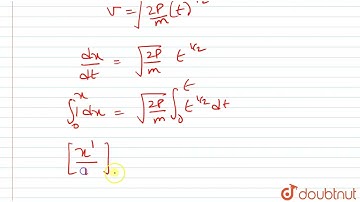 v = √(2P/m) (t)^1/2
dx/dt = √(2P/m) t^1/2
∫₀ˣ 1 dx = √(2P/m) ∫₀ᵗ t^1/2 dt
[x¹/
doubtnut